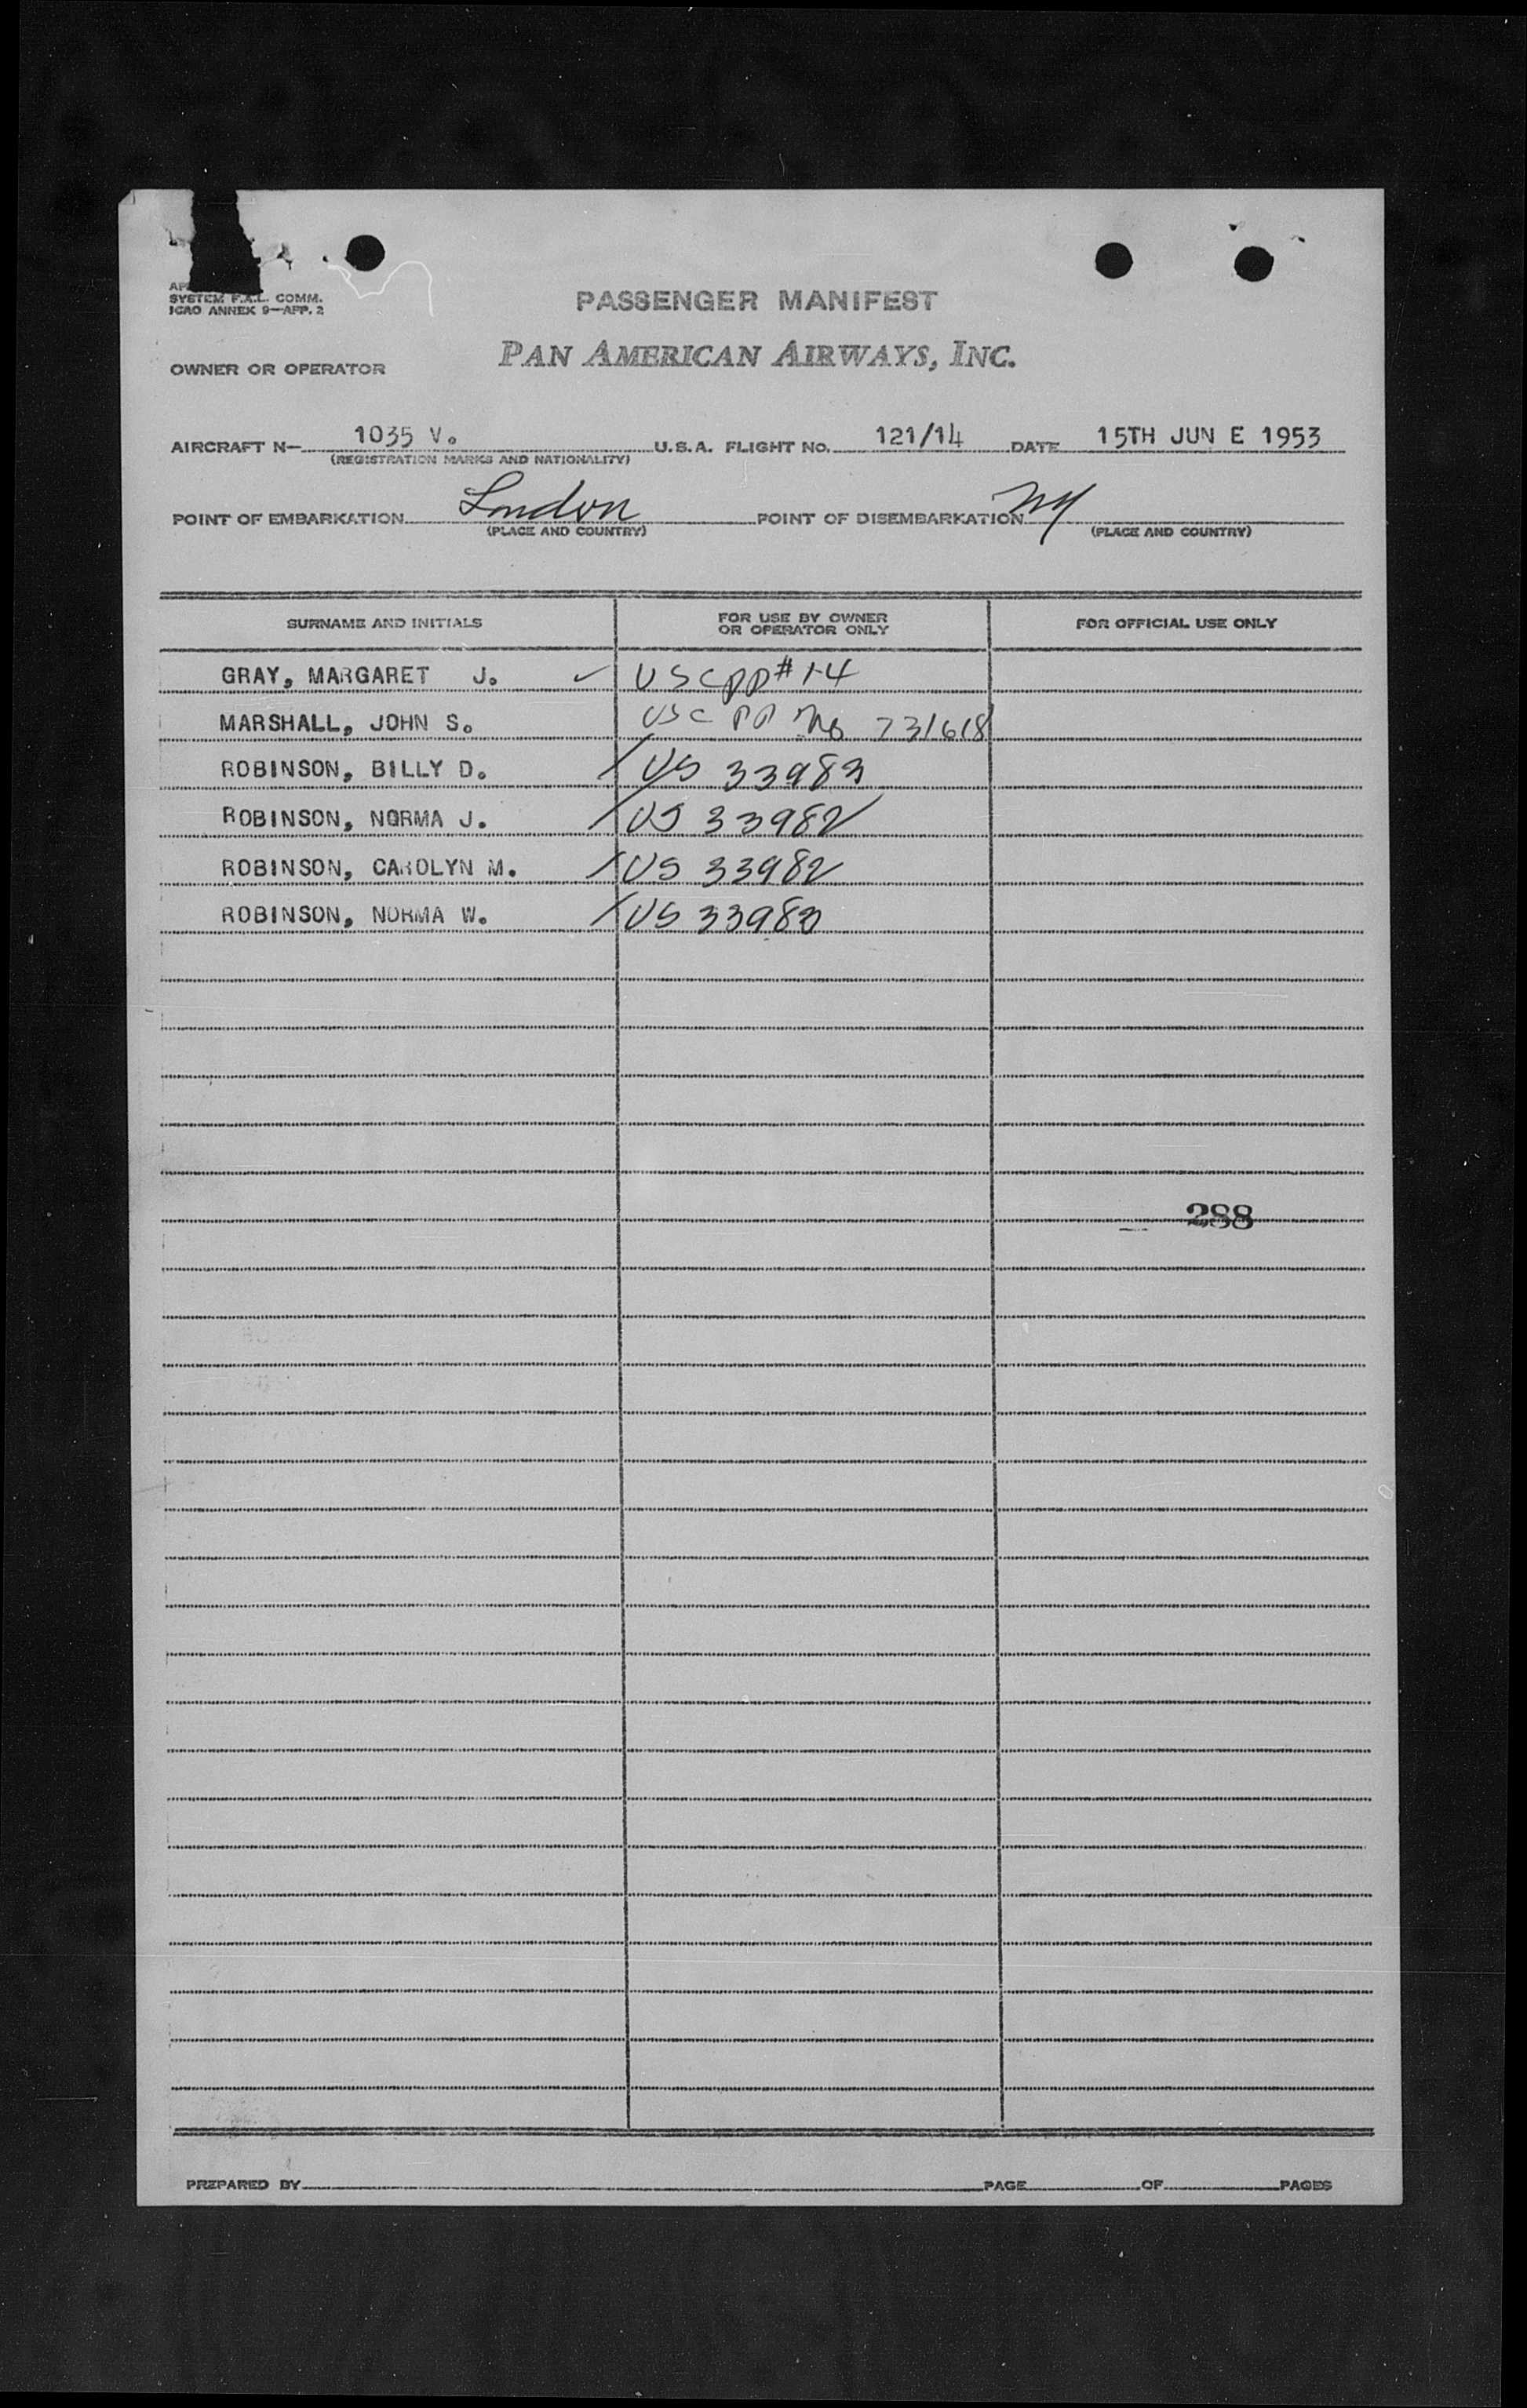 SYSTEM F.A.L. COMM.
ICAO ANNEX 9—APP. 2
PASSENGER MANIFEST
OWNER OR OPERATOR PAN AMERICAN AIRWAYS, INC.
AIRCRAFT N— 1035 V. U.S.A. FLIGHT NO. 121/14 DATE 15TH JUN E 1953
(REGISTRATION MARKS AND NATIONALITY)
POINT OF EMBARKATION London POINT OF DISEMBARKATION NY
(PLACE AND COUNTRY) (PLACE AND COUNTRY)
SURNAME AND INITIALS FOR USE BY OWNER OR OPERATOR ONLY FOR OFFICIAL USE ONLY
GRAY, MARGARET J. ✓ USC PP # 14
MARSHALL, JOHN S. USC PP No 731618
ROBINSON, BILLY D. / US 33983
ROBINSON, NORMA J. / US 33982
ROBINSON, CAROLYN M. / US 33982
ROBINSON, NORMA W. / US 33983
288
PREPARED BY PAGE OF PAGES